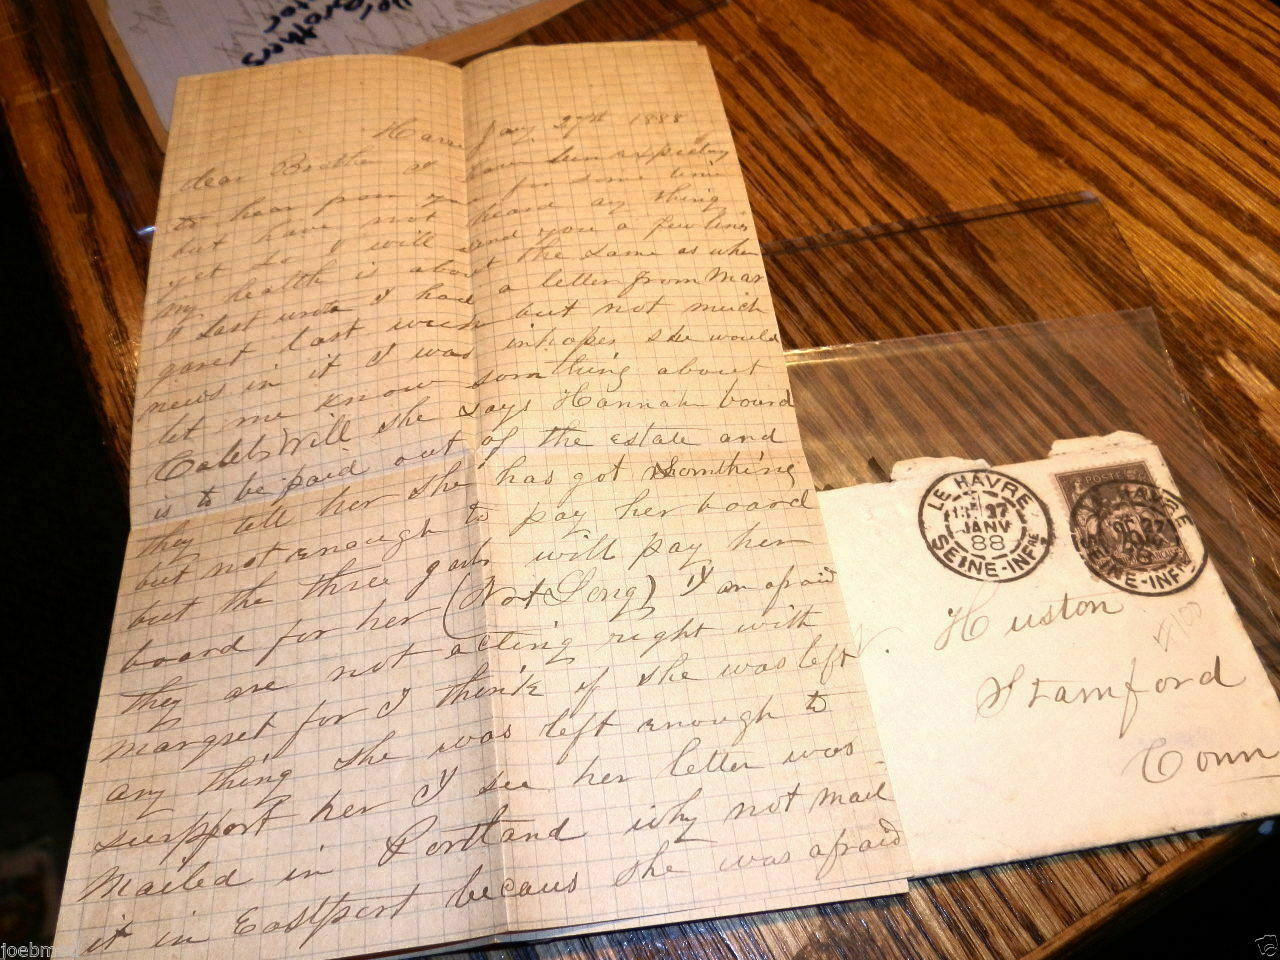 Brothers
Havre Jany 27th 1888
dear Brother I have bin expecting
to hear from you for some time
but have not heard any thing
yet so I will send you a few lines
my health is about the same as when
I last wrote I had a letter from Mar
garet last week but not much
news in it I was inhopes she would
let me know somthing about
Calebs Will she says Hannah board
is to be paid out of the estate and
they tell her she has got somthing
but not enough to pay her board
but the three will pay her
board for her (Not Long) I am afraid
they are not acting right with
margret for I think if she was left
any thing she was left enough to
support her I see her letter was
mailed in Portland why not mail
it in Eastport becaus she was afraid
LE HAVRE
27
JANV
88
SEINE-INFRE
POSTES
LE HAVRE
27
SEINE-INFRE
Huston
Stamford
Conn
$100
joebm